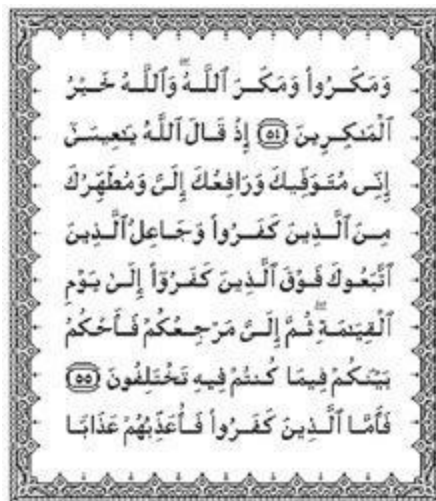 وَمَكَرُوا۟ وَمَكَرَ ٱللَّهُ ۖ وَٱللَّهُ خَيْرُ
ٱلْمَـٰكِرِينَ ﴿٥٤﴾ إِذْ قَالَ ٱللَّهُ يَـٰعِيسَىٰٓ
إِنِّى مُتَوَفِّيكَ وَرَافِعُكَ إِلَىَّ وَمُطَهِّرُكَ
مِنَ ٱلَّذِينَ كَفَرُوا۟ وَجَاعِلُ ٱلَّذِينَ
ٱتَّبَعُوكَ فَوْقَ ٱلَّذِينَ كَفَرُوٓا۟ إِلَىٰ يَوْمِ
ٱلْقِيَـٰمَةِ ۖ ثُمَّ إِلَىَّ مَرْجِعُكُمْ فَأَحْكُمُ
بَيْنَكُمْ فِيمَا كُنتُمْ فِيهِ تَخْتَلِفُونَ ﴿٥٥﴾
فَأَمَّا ٱلَّذِينَ كَفَرُوا۟ فَأُعَذِّبُهُمْ عَذَابًا